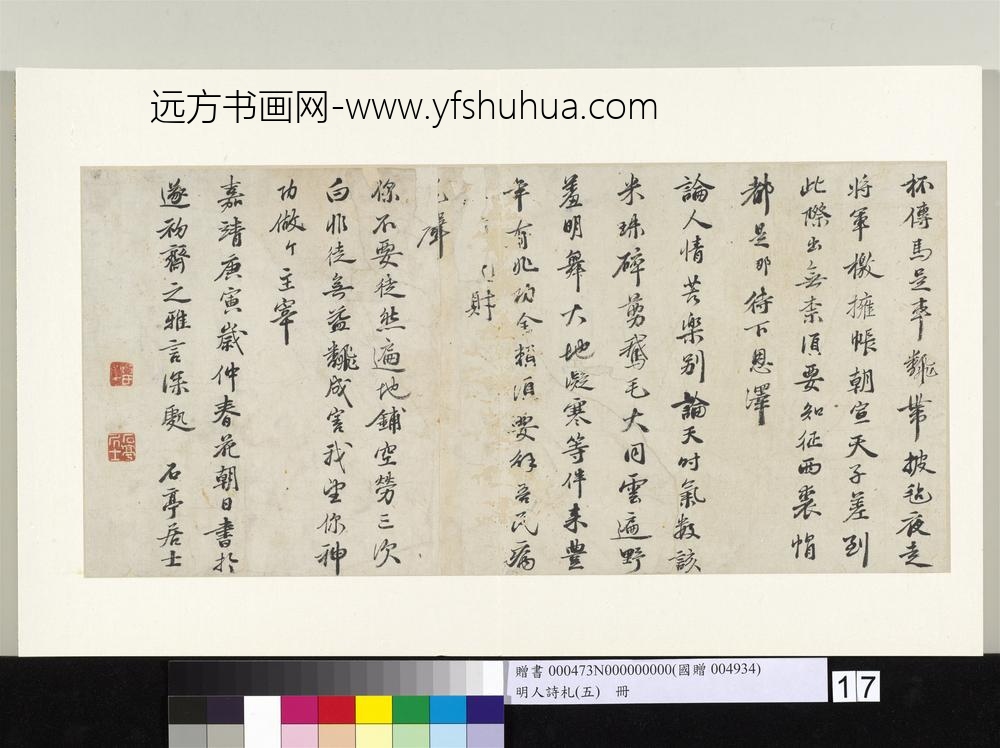 远方书画网-www.yfshuhua.com
杯傳馬是車翻帶披毡夜走
將軍檄擁帳朝宣天子差到
此際出無柰須要知征西裘帽
都是那待下恩澤
論人情苦樂別論天时氣数該
米珠碎剪鵝毛大同雲遍野
羞明舞大地凝寒等伴来豊
年有兆功全賴須要解吾民痛
財
犀
你不要徒然遍地鋪空勞三次
白非徒無益翻成害我望你神
功做个主宰
嘉靖庚寅歲仲春花朝日書於
遂初齋之雅言深處 石亭居士
贈書 000473N000000000(國贈 004934)
明人詩札(五) 冊
17